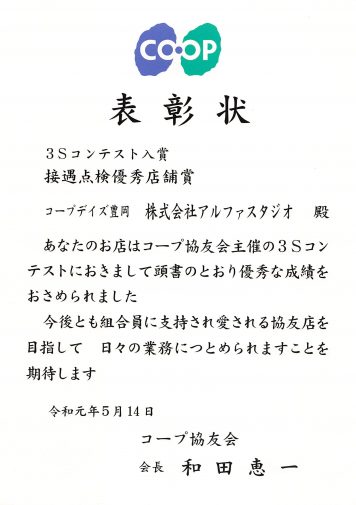 CO·OP
表彰状
3Sコンテスト入賞
接遇点検優秀店舗賞
コープデイズ豊岡　株式会社アルファスタジオ　殿
あなたのお店はコープ協友会主催の3Sコン
テストにおきまして頭書のとおり優秀な成績を
おさめられました
今後とも組合員に支持され愛される協友店を
目指して　日々の業務につとめられますことを
期待します
令和元年5月14日
コープ協友会
会長　和田恵一